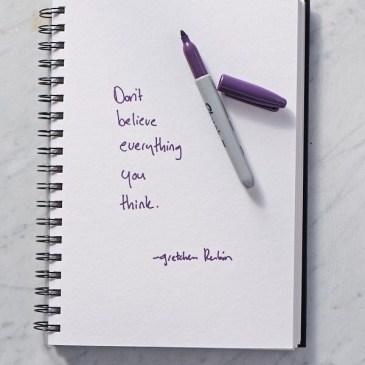 Don't
believe
everything
you
think.
~gretchen Rubin